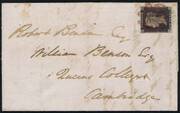 Robert Benson Esq
William Benson Esq
Queens College
Cambridge